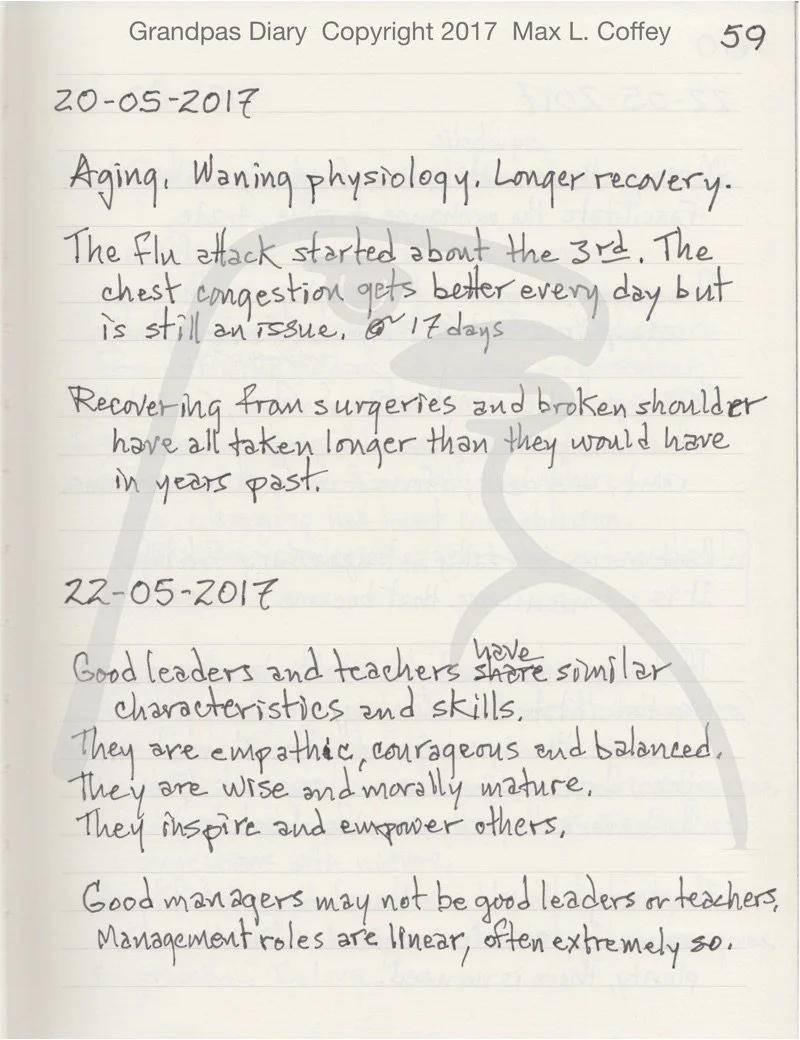 Grandpas Diary Copyright 2017 Max L. Coffey 59
20-05-2017
Aging. Waning physiology. Longer recovery.
The flu attack started about the 3rd. The
chest congestion gets better every day but
is still an issue. @~ 17 days
Recovering from surgeries and broken shoulder
have all taken longer than they would have
in years past.
22-05-2017
have
Good leaders and teachers share similar
characteristics and skills.
They are empathic, courageous and balanced.
They are wise and morally mature.
They inspire and empower others.
Good managers may not be good leaders or teachers.
Management roles are linear, often extremely so.